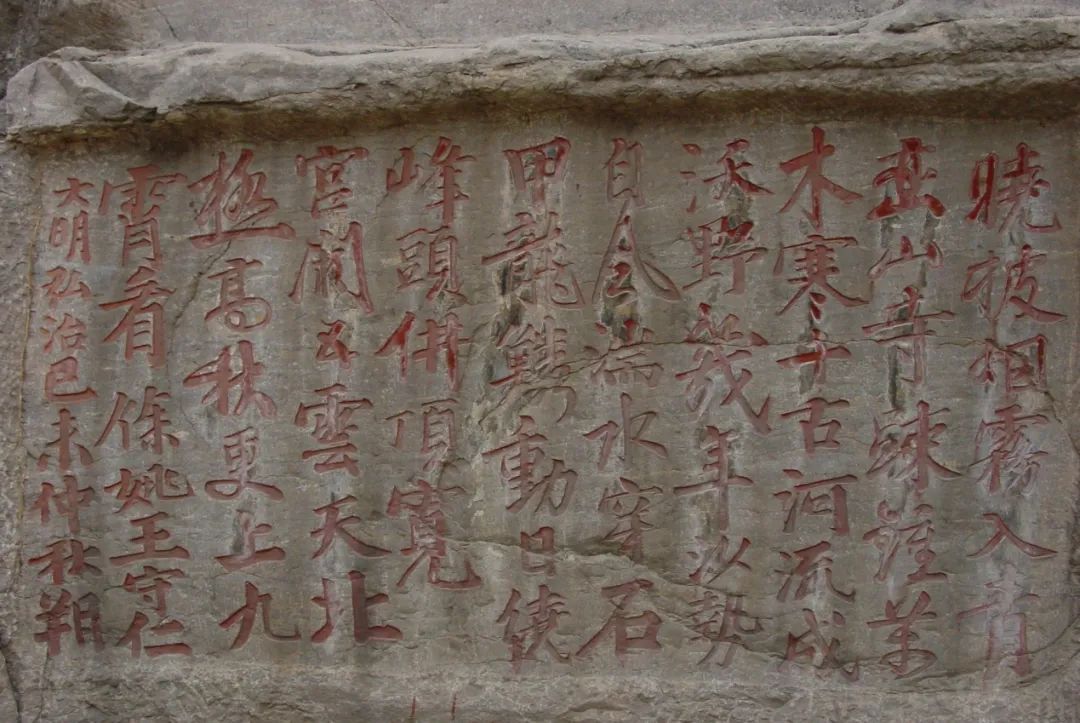 曉披烟霧入青
峦山寺踈鐘萬
木寒千古河流成
沃野幾年沙勢
自風湍水穿石
甲龍鱗動日繞
峰頭佛頂寬
宮闕五雲天北
極高秋更上九
霄看 餘姚王守仁
大明弘治己未仲秋朔